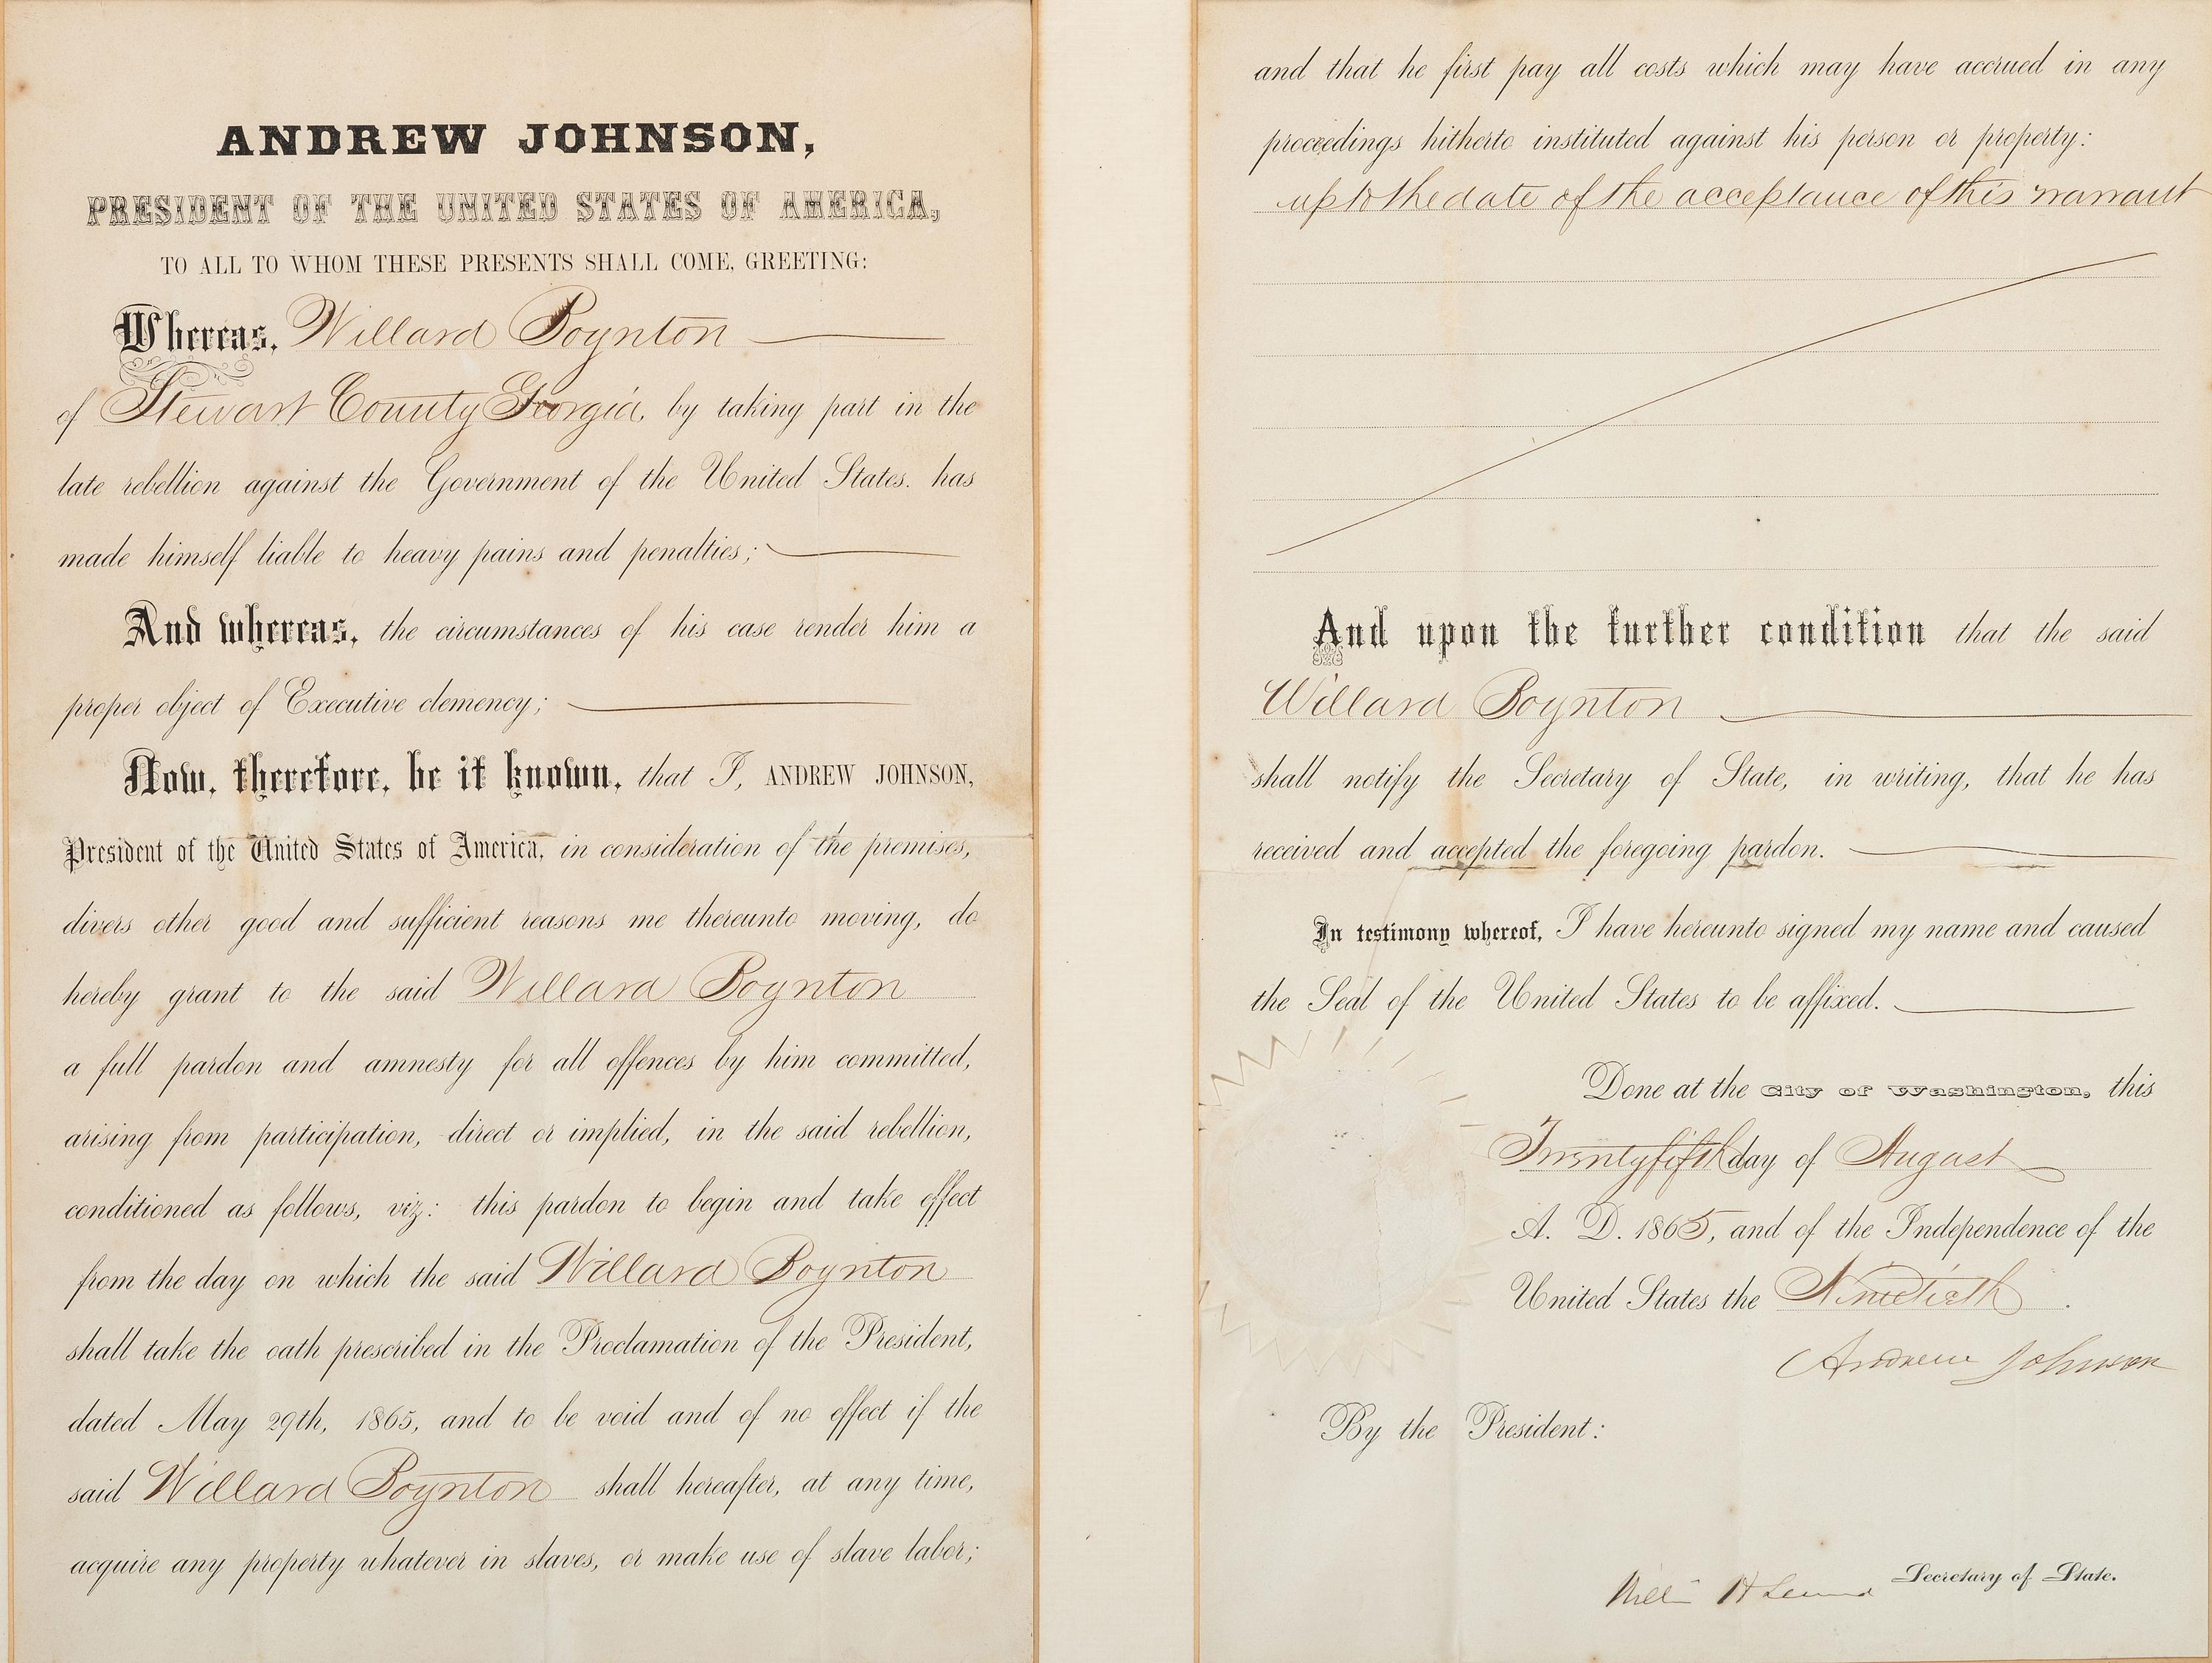 ANDREW JOHNSON,
PRESIDENT OF THE UNITED STATES OF AMERICA,
TO ALL TO WHOM THESE PRESENTS SHALL COME, GREETING:
Whereas, Willard Boynton
of Stewart County Georgia, by taking part in the
late rebellion against the Government of the United States. has
made himself liable to heavy pains and penalties;
And whereas, the circumstances of his case render him a
proper object of Executive clemency;
Now, therefore, be it known, that I, ANDREW JOHNSON,
President of the United States of America, in consideration of the premises,
divers other good and sufficient reasons me thereunto moving, do
hereby grant to the said Willard Boynton
a full pardon and amnesty for all offences by him committed,
arising from participation, direct or implied, in the said rebellion,
conditioned as follows, viz: this pardon to begin and take effect
from the day on which the said Willard Boynton
shall take the oath prescribed in the Proclamation of the President,
dated May 29th, 1865, and to be void and of no effect if the
said Willard Boynton shall hereafter, at any time,
acquire any property whatever in slaves, or make use of slave labor;
and that he first pay all costs which may have accrued in any
proceedings hitherto instituted against his person or property:
up to the date of the acceptance of this warrant
And upon the further condition that the said
Willard Boynton
shall notify the Secretary of State, in writing, that he has
received and accepted the foregoing pardon.
In testimony whereof, I have hereunto signed my name and caused
the Seal of the United States to be affixed.
Done at the City of Washington, this
Twenty fifth day of August
A. D. 1865, and of the Independence of the
United States the Ninetieth.
Andrew Johnson
By the President:
William H Seward Secretary of State.